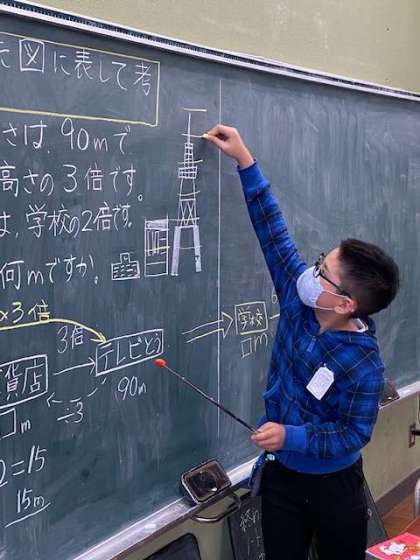 た図に表して考
さは、90mで
高さの3倍です。
は、学校の2倍です。
何mですか。
×3倍
3倍
貨店
テレビとう
学校
□m
90m
÷3
□m
=15
15m